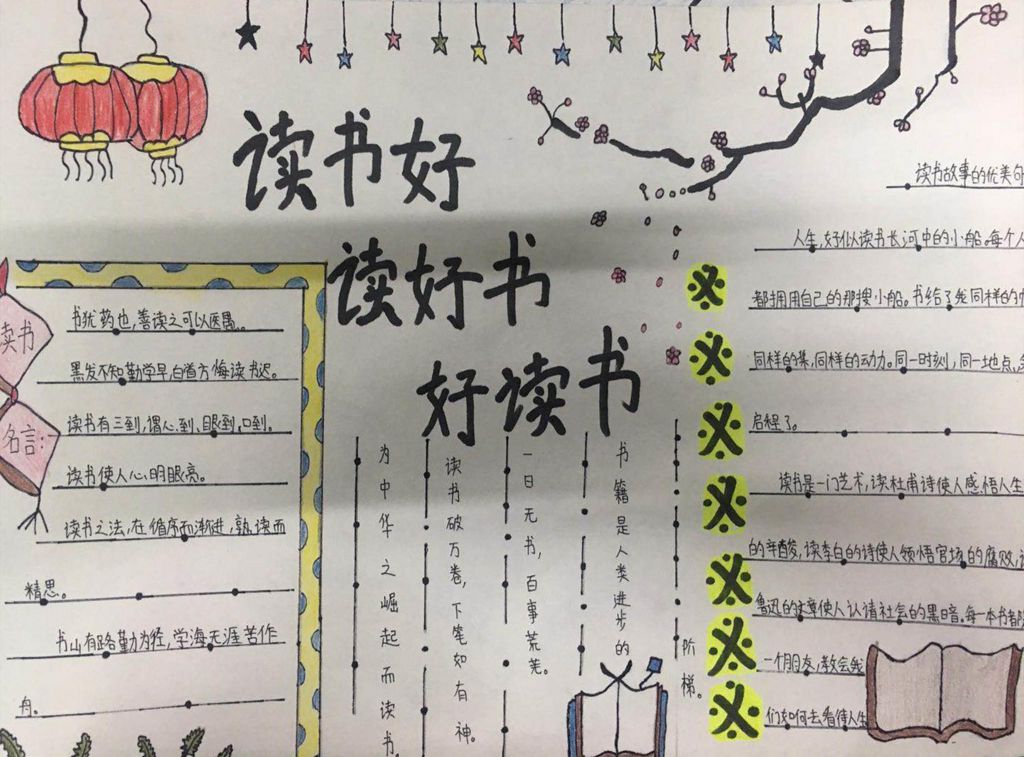 读书好
读好书
好读书
读书
名言:
书犹药也,善读之可以医愚。
黑发不知勤学早,白首方悔读书迟。
读书有三到,谓心到、眼到、口到。
读书使人心明眼亮。
读书之法,在循序而渐进,熟读而
精思。
书山有路勤为径,学海无涯苦作
舟。
为中华之崛起而读书。
读书破万卷,下笔如有神。
一日无书,百事荒芜。
书籍是人类进步的
阶梯。
读书故事的优美句
人生,好似读书长河中的小船。每个人
都拥用自己的那搜小船。书给了我同样的
同样的桨,同样的动力。同一时刻,同一地点,
启程了。
读书是一门艺术,读杜甫诗使人感悟人生
的辛酸,读李白的诗使人领悟官场的腐败,
鲁迅的文章使人认请社会的黑暗。每一本书都
一个朋友,教会我
们如何去看待人生